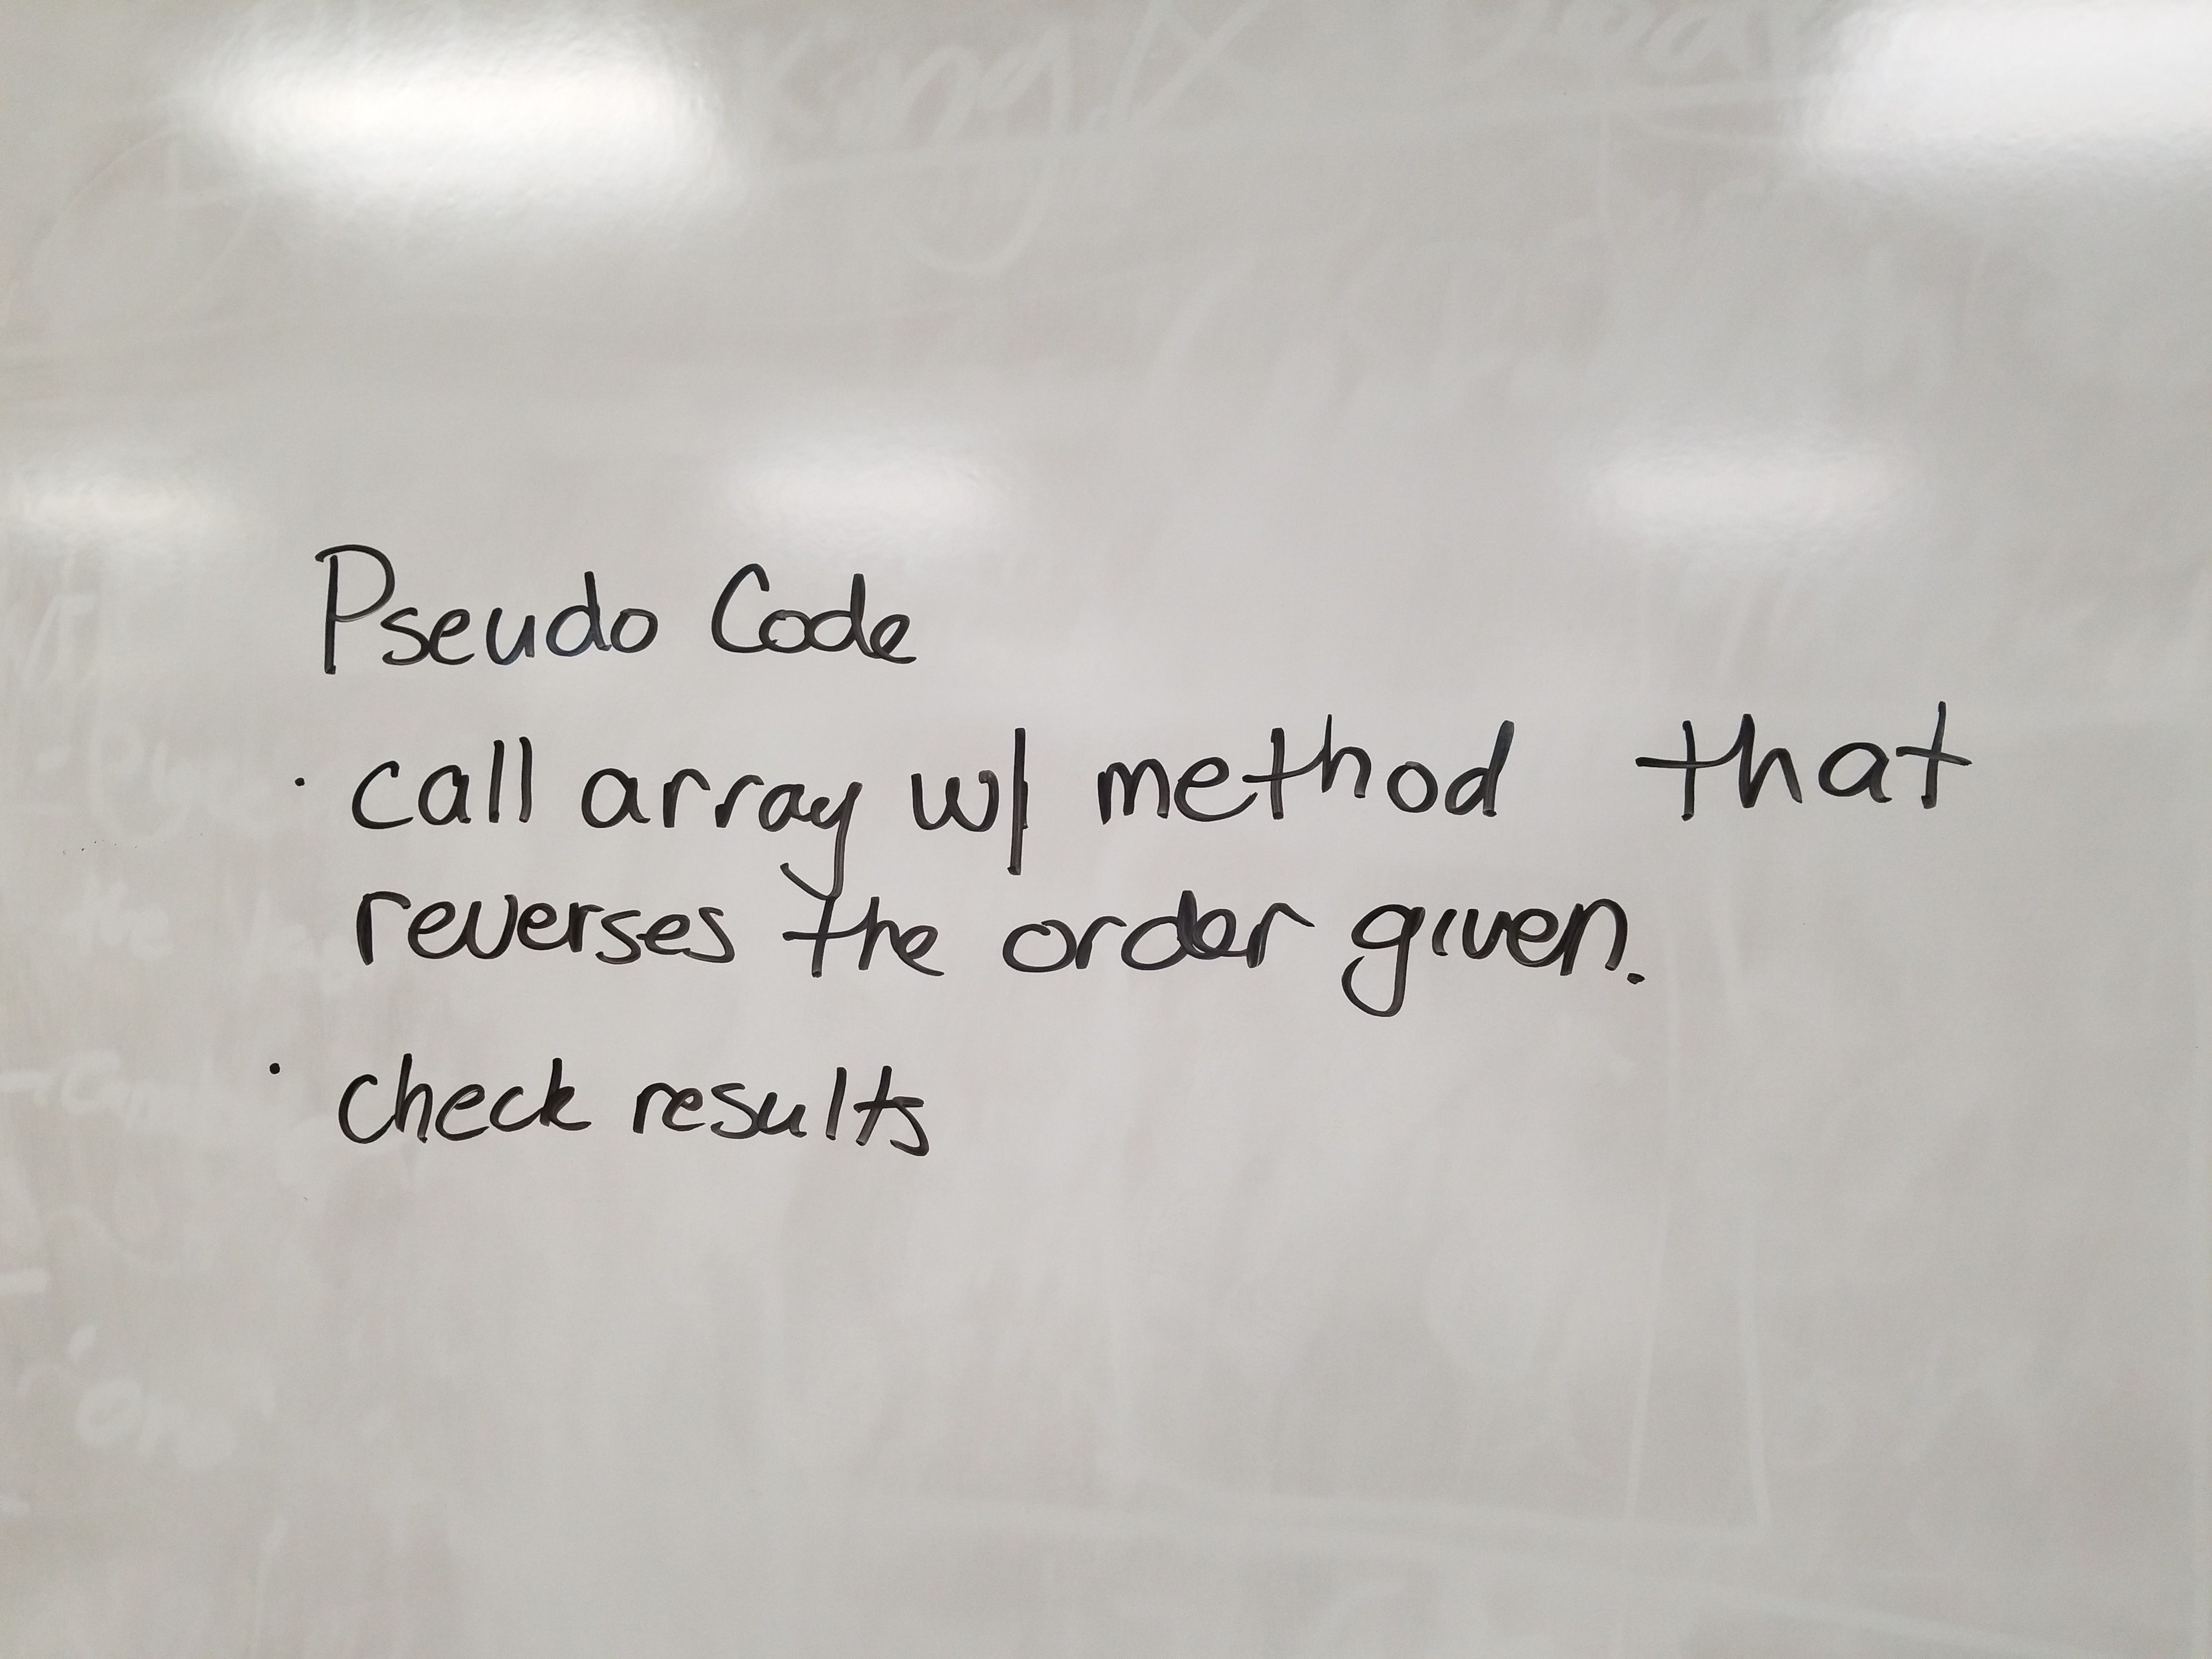 Pseudo Code
· call array w/ method that
reverses the order given.
· check results